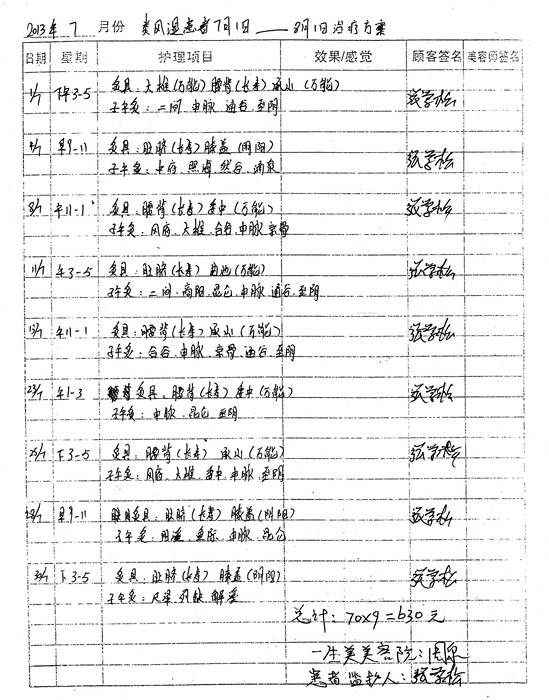 2013年 7 月份 类风湿患者7月1日——8月1日治疗方案
日期 星期 护理项目 效果/感觉 顾客签名 美容师签名
1/7 下午3-5 灸具：大椎(万能) 腰背(长寿) 承山(万能) 张学松
子午灸：二间、申脉、通谷、至阴
早9-11 灸具：肚脐(长寿) 膝盖(阴阳) 张学松
子午灸：中府、照海、然谷、涌泉
8/7 午11-1 灸具：腰背(长寿) 委中(万能) 张学松
子午灸：风府、大椎、合谷、申脉、京骨
11/7 午3-5 灸具：肚脐(长寿) 曲池(万能) 张学松
子午灸：二间、商阳、昆仑、申脉、通谷、至阴
15/7 午11-1 灸具：腰背(长寿) 承山(万能) 张学松
子午灸：合谷、申脉、京骨、通谷、至阴
午1-3 灸具：腰背(长寿) 委中(万能) 张学松
子午灸：申脉、昆仑、至阴
25/7 下3-5 灸具：腰背(长寿) 承山(万能) 张学松
子午灸：风府、大椎、委中、申脉、至阴
28/7 早9-11 灸具：肚脐(长寿) 膝盖(阴阳) 张学松
子午灸：鱼际、申脉、昆仑
下3-5 灸具：肚脐(长寿) 膝盖(阴阳) 张学松
子午灸：尺泽、列缺、解溪
总计：70×9=630元
一生美美容院：周
患者监护人：张学松